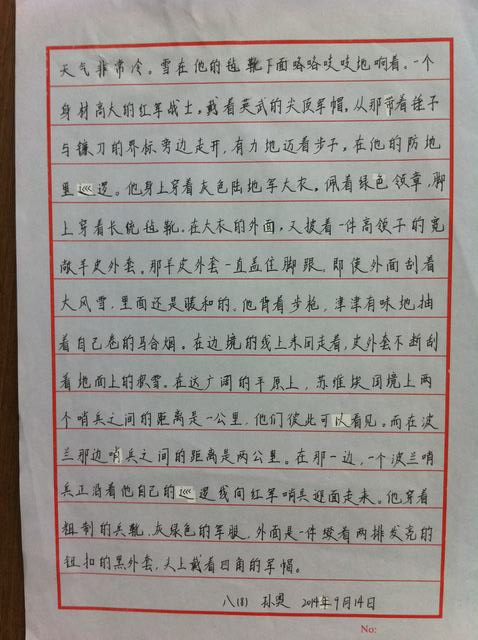 天气非常冷。雪在他的毡靴下面咯咯吱吱地响着。一个
身材高大的红军战士，戴着英武的尖顶军帽，从那带着锤子
与镰刀的界标旁边走开，有力地迈着步子，在他的防地
里巡逻。他身上穿着灰色陆地军大衣，佩着绿色领章，脚
上穿着长统毡靴。在大衣的外面，又披着一件高领子的宽
敞羊皮外套。那羊皮外套一直盖住脚跟，即使外面刮着
大风雪，里面还是暖和的。他背着步枪，津津有味地抽
着自己卷的马合烟。在边境的线上来回走着，皮外套不断刮
着地面上的积雪。在这广阔的平原上，苏维埃国境上两
个哨兵之间的距离是一公里，他们彼此可以看见。而在波
兰那边哨兵之间的距离是两公里。在那一边，一个波兰哨
兵正沿着他自己的巡逻线向红军哨兵迎面走来。他穿着
粗制的兵靴，灰绿色的军服，外面是一件缀着两排发亮的
钮扣的黑外套，头上戴着四角的军帽。
八(8) 孙奥 2014年9月14日
No: